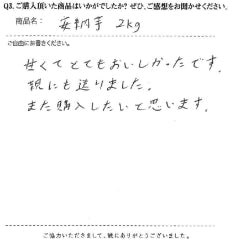 Q3.ご購入頂いた商品はいかがでしたか？ぜひ、ご感想をお聞かせください。
商品名： 安納芋 2kg
ご自由にお書きください。
甘くてとてもおいしかったです。
親にも送りました。
また購入したいと思います。
ご協力いただきまして、誠にありがとうございました。